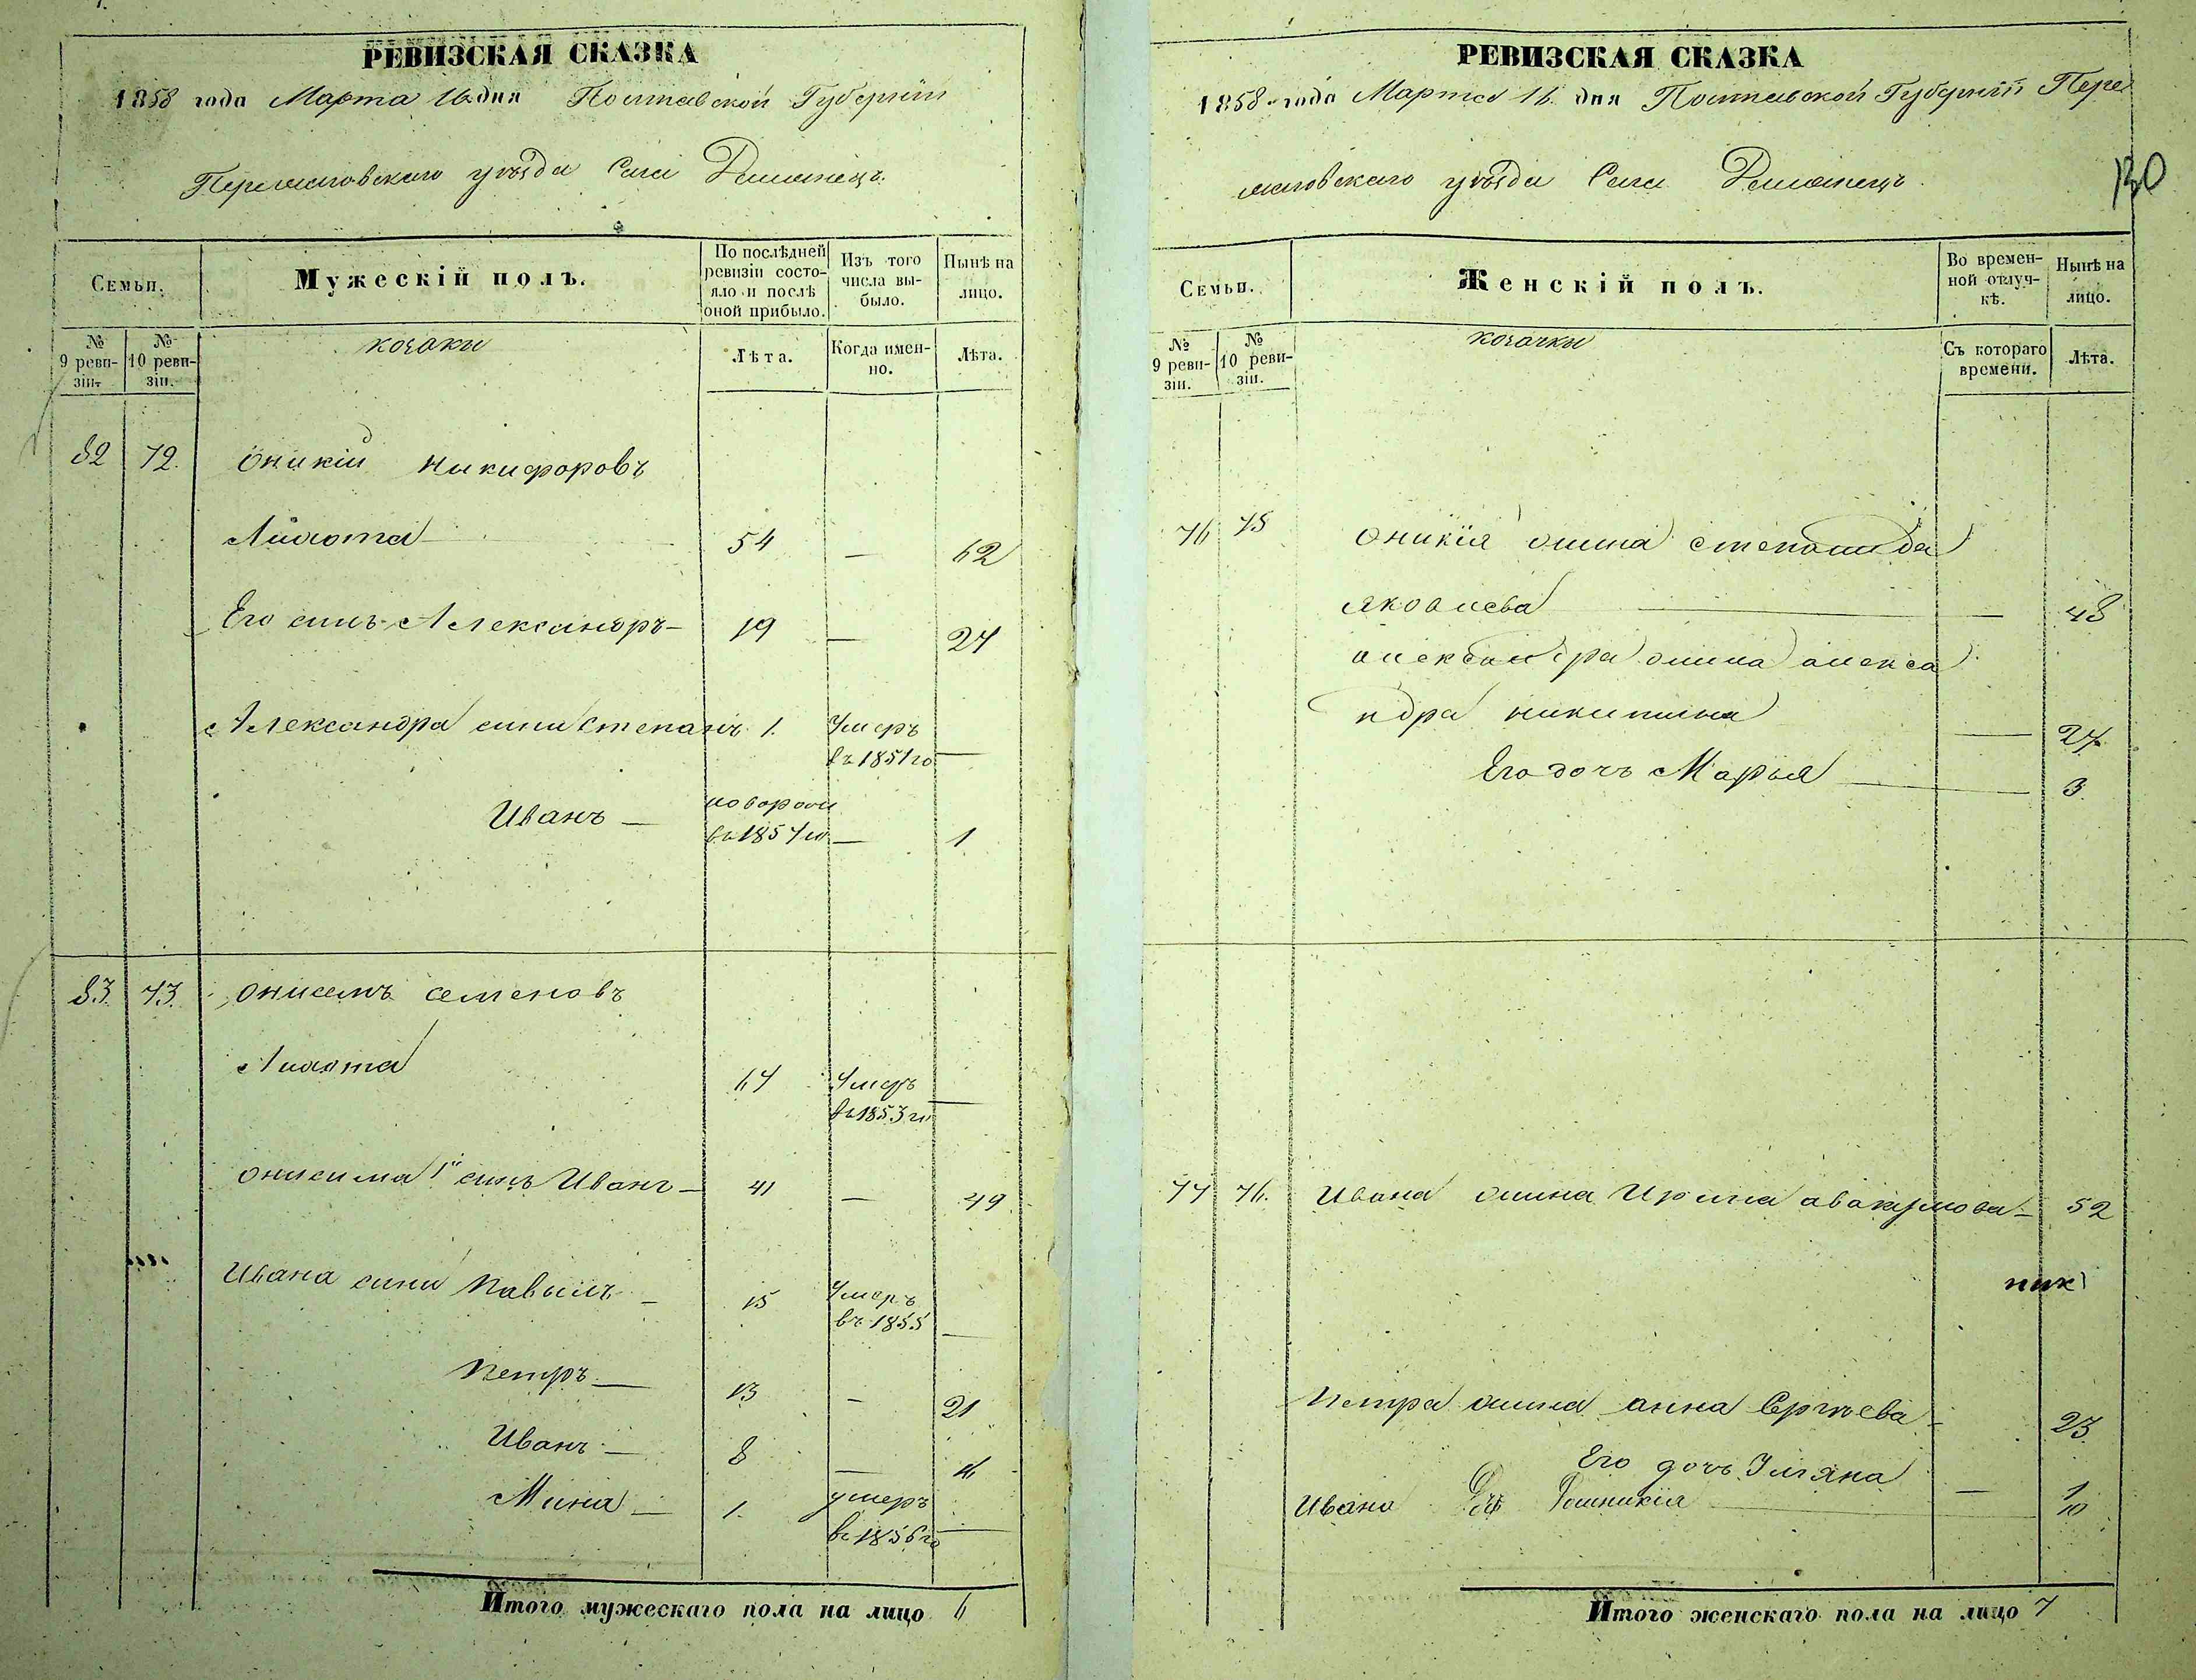 РЕВИЗСКАЯ СКАЗКА
1858 года Марта 16 дня Полтавской Губерніи
Переяславского уѣзда Села
Семьи.
Мужескій полъ.
По послѣдней ревизіи состояло и послѣ оной прибыло.
Изъ того числа выбыло.
Нынѣ на лицо.
№ 9 ревизіи.
№ 10 ревизіи.
козаки
Лѣта.
Когда именно.
Лѣта.
82 72. Оникій Никифоровъ
54 — 62
Его синъ Александръ — 19 — 27
Александра сини Степанъ 1. Умеръ
въ 1851 го —
Иванъ — новорож
въ 1857 го — 1
83. 73. Онисимъ Семеновъ
67 Умеръ
въ 1853 го —
Онисима 1й синъ Иванъ — 41 — 49
Ивана сини Павылъ — 15 Умеръ
въ 1855 —
Петръ — 13 — 21
Иванъ — 8 — 16
Мина — 1. умеръ
въ 1856 го —
Итого мужескаго пола на лицо 6
РЕВИЗСКАЯ СКАЗКА
1858 года Марта 16 дня Полтавской Губерніи Пере
яславского уѣзда Села
130
Семьи.
Женскій полъ.
Во временной отлучкѣ.
Нынѣ на лицо.
№ 9 ревизіи.
№ 10 ревизіи.
козачки
Съ котораго времени.
Лѣта.
76 75 Оникія жина Степанида
Яковлева — 48
Александра жина алекса
ндра никитина — 27
Его дочь Марья — 3
77 76. Ивана жина Ирина авакумова — 52
Петра жина анна Сергѣева — 23
Его дочь Уляна — 1
Ивана 10
Итого женскаго пола на лицо 7